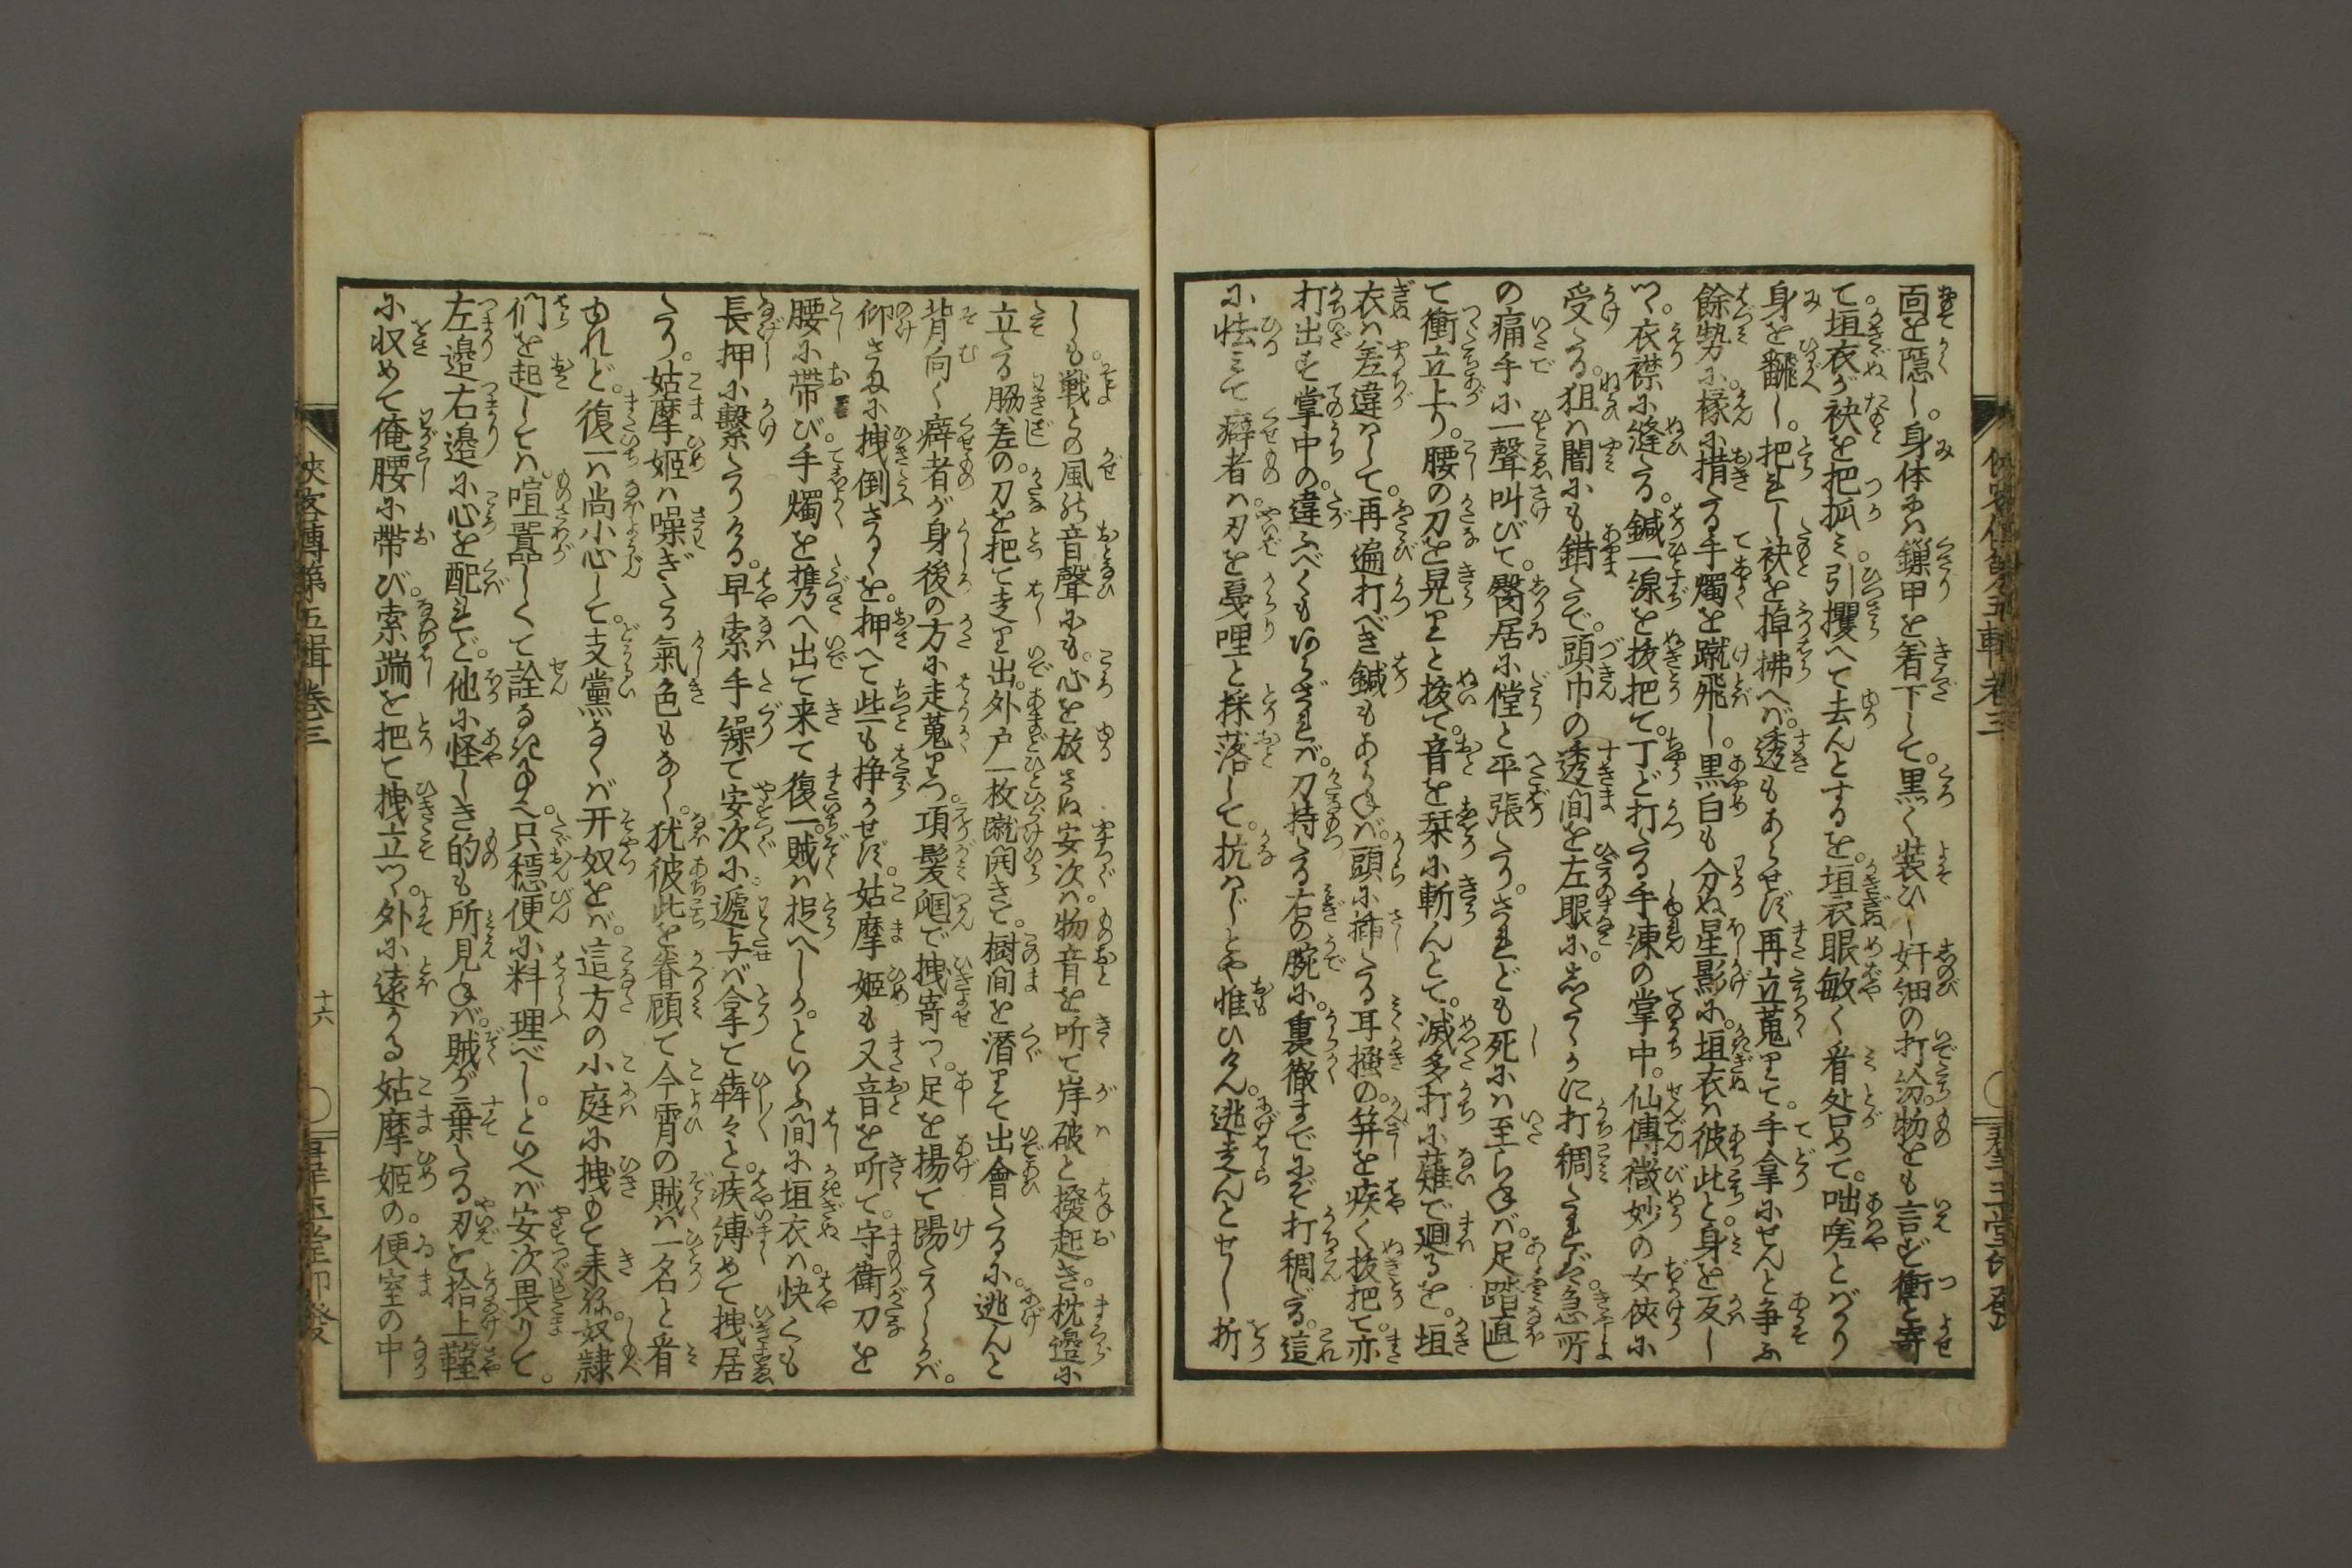 面を隠し。身体には鏁甲を着下して。黒く装ひし奸細の打扮。物をも言ず衝と寄
て。垣衣が袂を把抓み。引攫へて去んとするを。垣衣眼敏く看咎めて。咄嗟とばかり
身を翻し。把れし袂を掉拂へば。透もあらせず再立蒐りて。手拿にせんと争ふ
餘勢に。椽に措たる手燭を蹴飛し。黒白も分ぬ星影に。垣衣は彼此と。身を反し
つゝ。衣襟に縫たる。鍼一線を抜把て。丁ど打たる手凍の掌中。仙傳微妙の女侠に
受たる。狙は闇にも錯たで。頭巾の透間を左眼に。したゝかに打稠たれば。急所
の痛手に一聲叫びて。臀居に儻と平張たり。されども死には至らねば。足踏直し
て衝立上り。腰の刀を晃りと抜て。音を栞に斬んとて。滅多打に薙で廻るを。垣
衣は差違はして。再遍打べき鍼もあらねば。頭に挿たる耳掻の。笄を疾く抜把て。亦
打出す掌中の。違ふべくもあらざれば。刀持たる右の腕に。裏徹までにぞ打稠だる。這
に怯みて癖者は。刃を戞哩と採落して。抗はじとや惟ひけん。逃走んとせし折
しも。戦との風の音聲にも。心を放さぬ安次は。物音を听て岸破と撥起き。枕邉に
立たる脇差の。刀を把て走り出。外戸一枚蹴開きて。樹間を潜りて出會たるに。逃んと
背向く癖者が身後の方に走蒐りつ。項髪𢴃で拽寄つ。足を揚て踢たりしかば。
仰さまに拽倒さるゝを。押へて些も掙かせず。姑摩姫も又音を听て。守衛刀を
腰に帯び。手燭を携へ出て来て復一賊は捉へしか。といふ間に垣衣は。快くも
長押に繋たりける。早索手繰て安次に遞与ば拿て犇々と。疾縛めて拽居
たり。姑摩姫は噪ぎたる氣色もなく。猶彼此を眷顧て今宵の賊は一名と看
ゆれど。復一は尚小心して。支黨なくば开奴をば。這方の小庭に拽もて来ね。奴隷
们を起しては。喧囂しくて詮なきに。只穏便に料理べし。といへば安次畏りて。
左邉右邉に心を配れど。他に怪しき的も所見ねば。賊が棄たる刃を拾上鞘
に収めて俺腰に帯び。索端を把て拽立つゝ。外に遠かる姑摩姫の。便室の中
侠客傳第五輯巻三
侠客傳第五輯巻三
十六